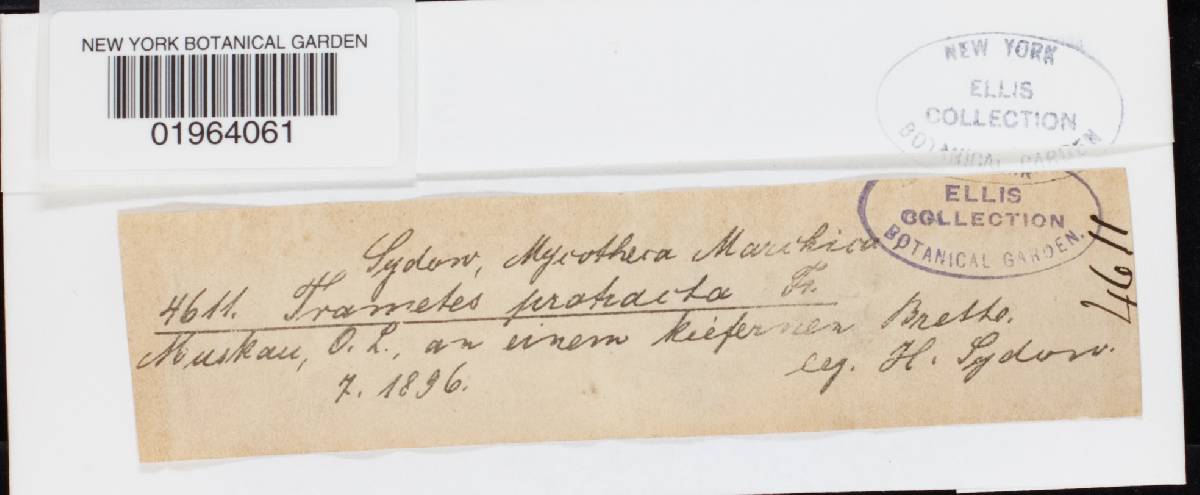 NEW YORK BOTANICAL GARDEN
01964061
NEW YORK
ELLIS
COLLECTION
BOTANICAL GARDEN
ELLIS
COLLECTION
BOTANICAL GARDEN.
Sydow, Mycotheca Marchica
4611. Trametes protracta Fr.
Muskau, O. L., an einem kiefernen Brette.
7. 1896. leg. H. Sydow.
4611